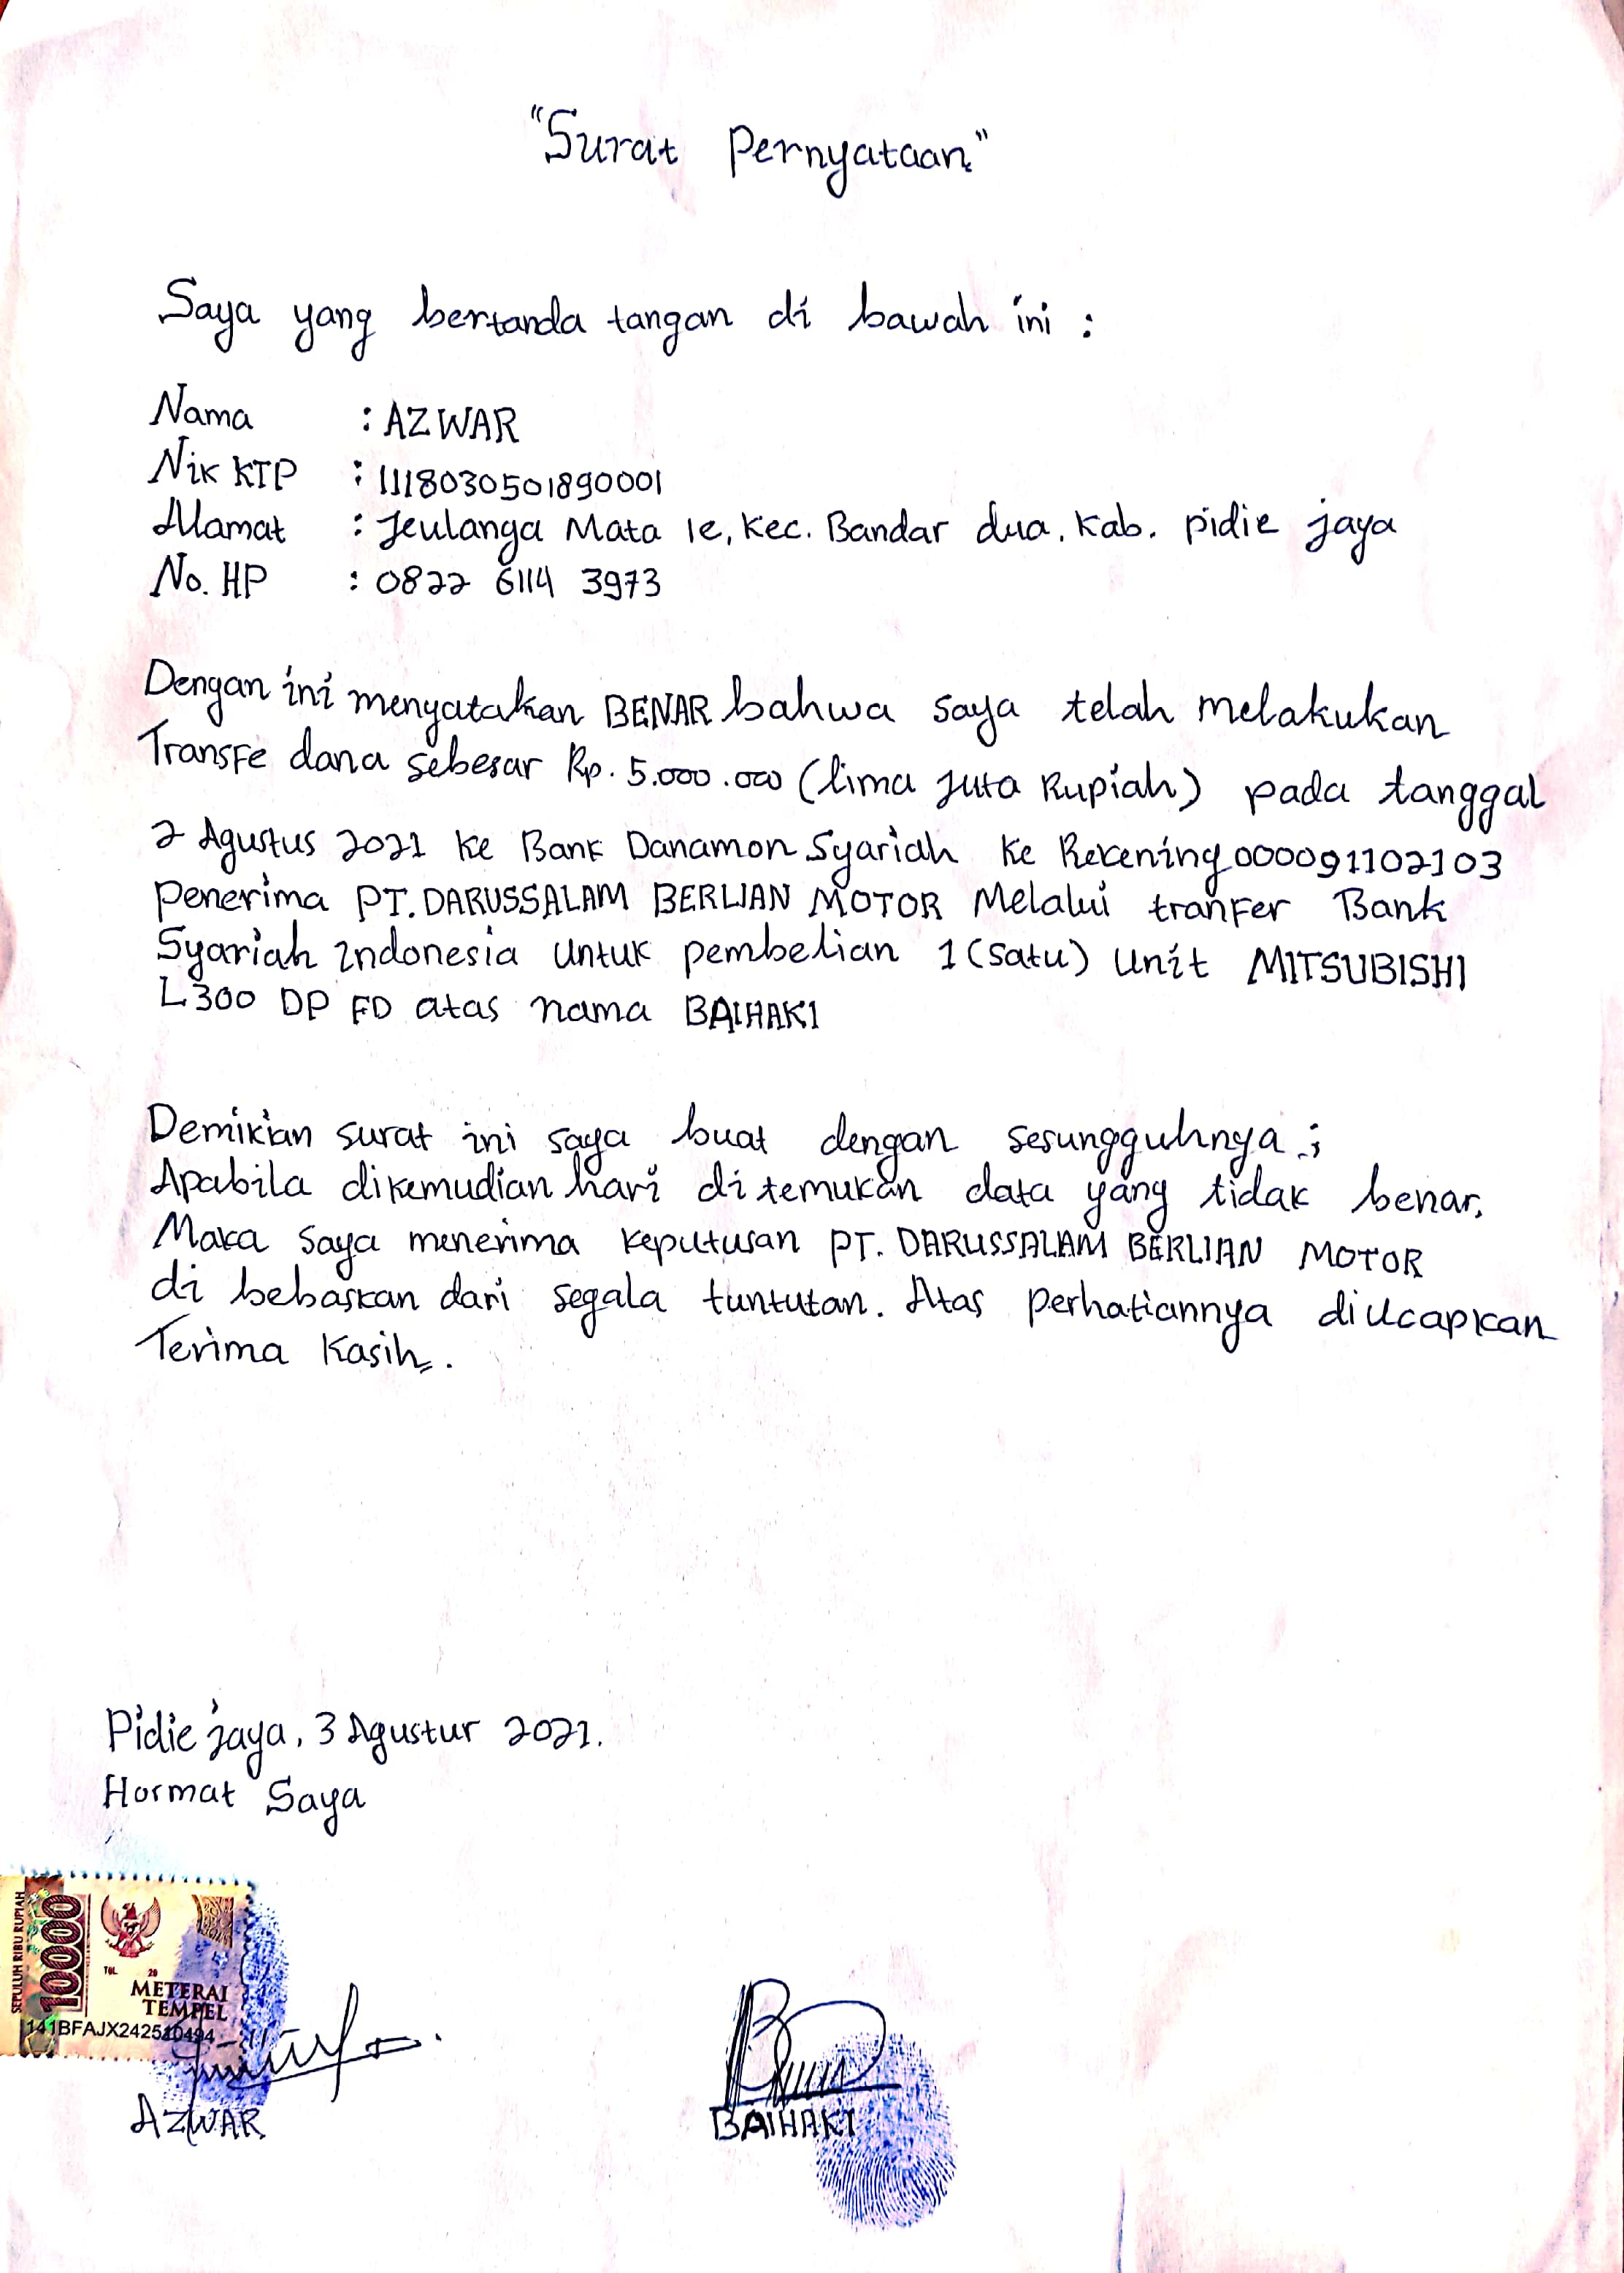 "Surat Pernyataan"
Saya yang bertanda tangan di bawah ini :
Nama : AZWAR
Nik KTP : 1118030501890001
Alamat : Jeulanga Mata Ie, Kec. Bandar dua. Kab. pidie jaya
No. HP : 0822 6114 3973
Dengan ini menyatakan BENAR bahwa saya telah melakukan
Transfe dana sebesar Rp. 5.000.000 (lima Juta Rupiah) pada tanggal
2 Agustus 2021 ke Bank Danamon Syariah ke Rekening 000091102103
Penerima PT. DARUSSALAM BERLIAN MOTOR Melalui tranfer Bank
Syariah Indonesia untuk pembelian 1 (satu) unit MITSUBISHI
L300 DP FD atas nama BAIHAKI
Demikian surat ini saya buat dengan sesungguhnya ;
Apabila dikemudian hari di temukan data yang tidak benar,
Maka saya menerima keputusan PT. DARUSSALAM BERLIAN MOTOR
di bebaskan dari segala tuntutan. Atas perhatiannya diucapkan
Terima Kasih.
Pidie jaya, 3 Agustur 2021.
Hormat Saya
SEPULUH RIBU RUPIAH
10000
TGL. 20
METERAI
TEMPEL
141BFAJX242510494
AZWAR
BAIHAKI